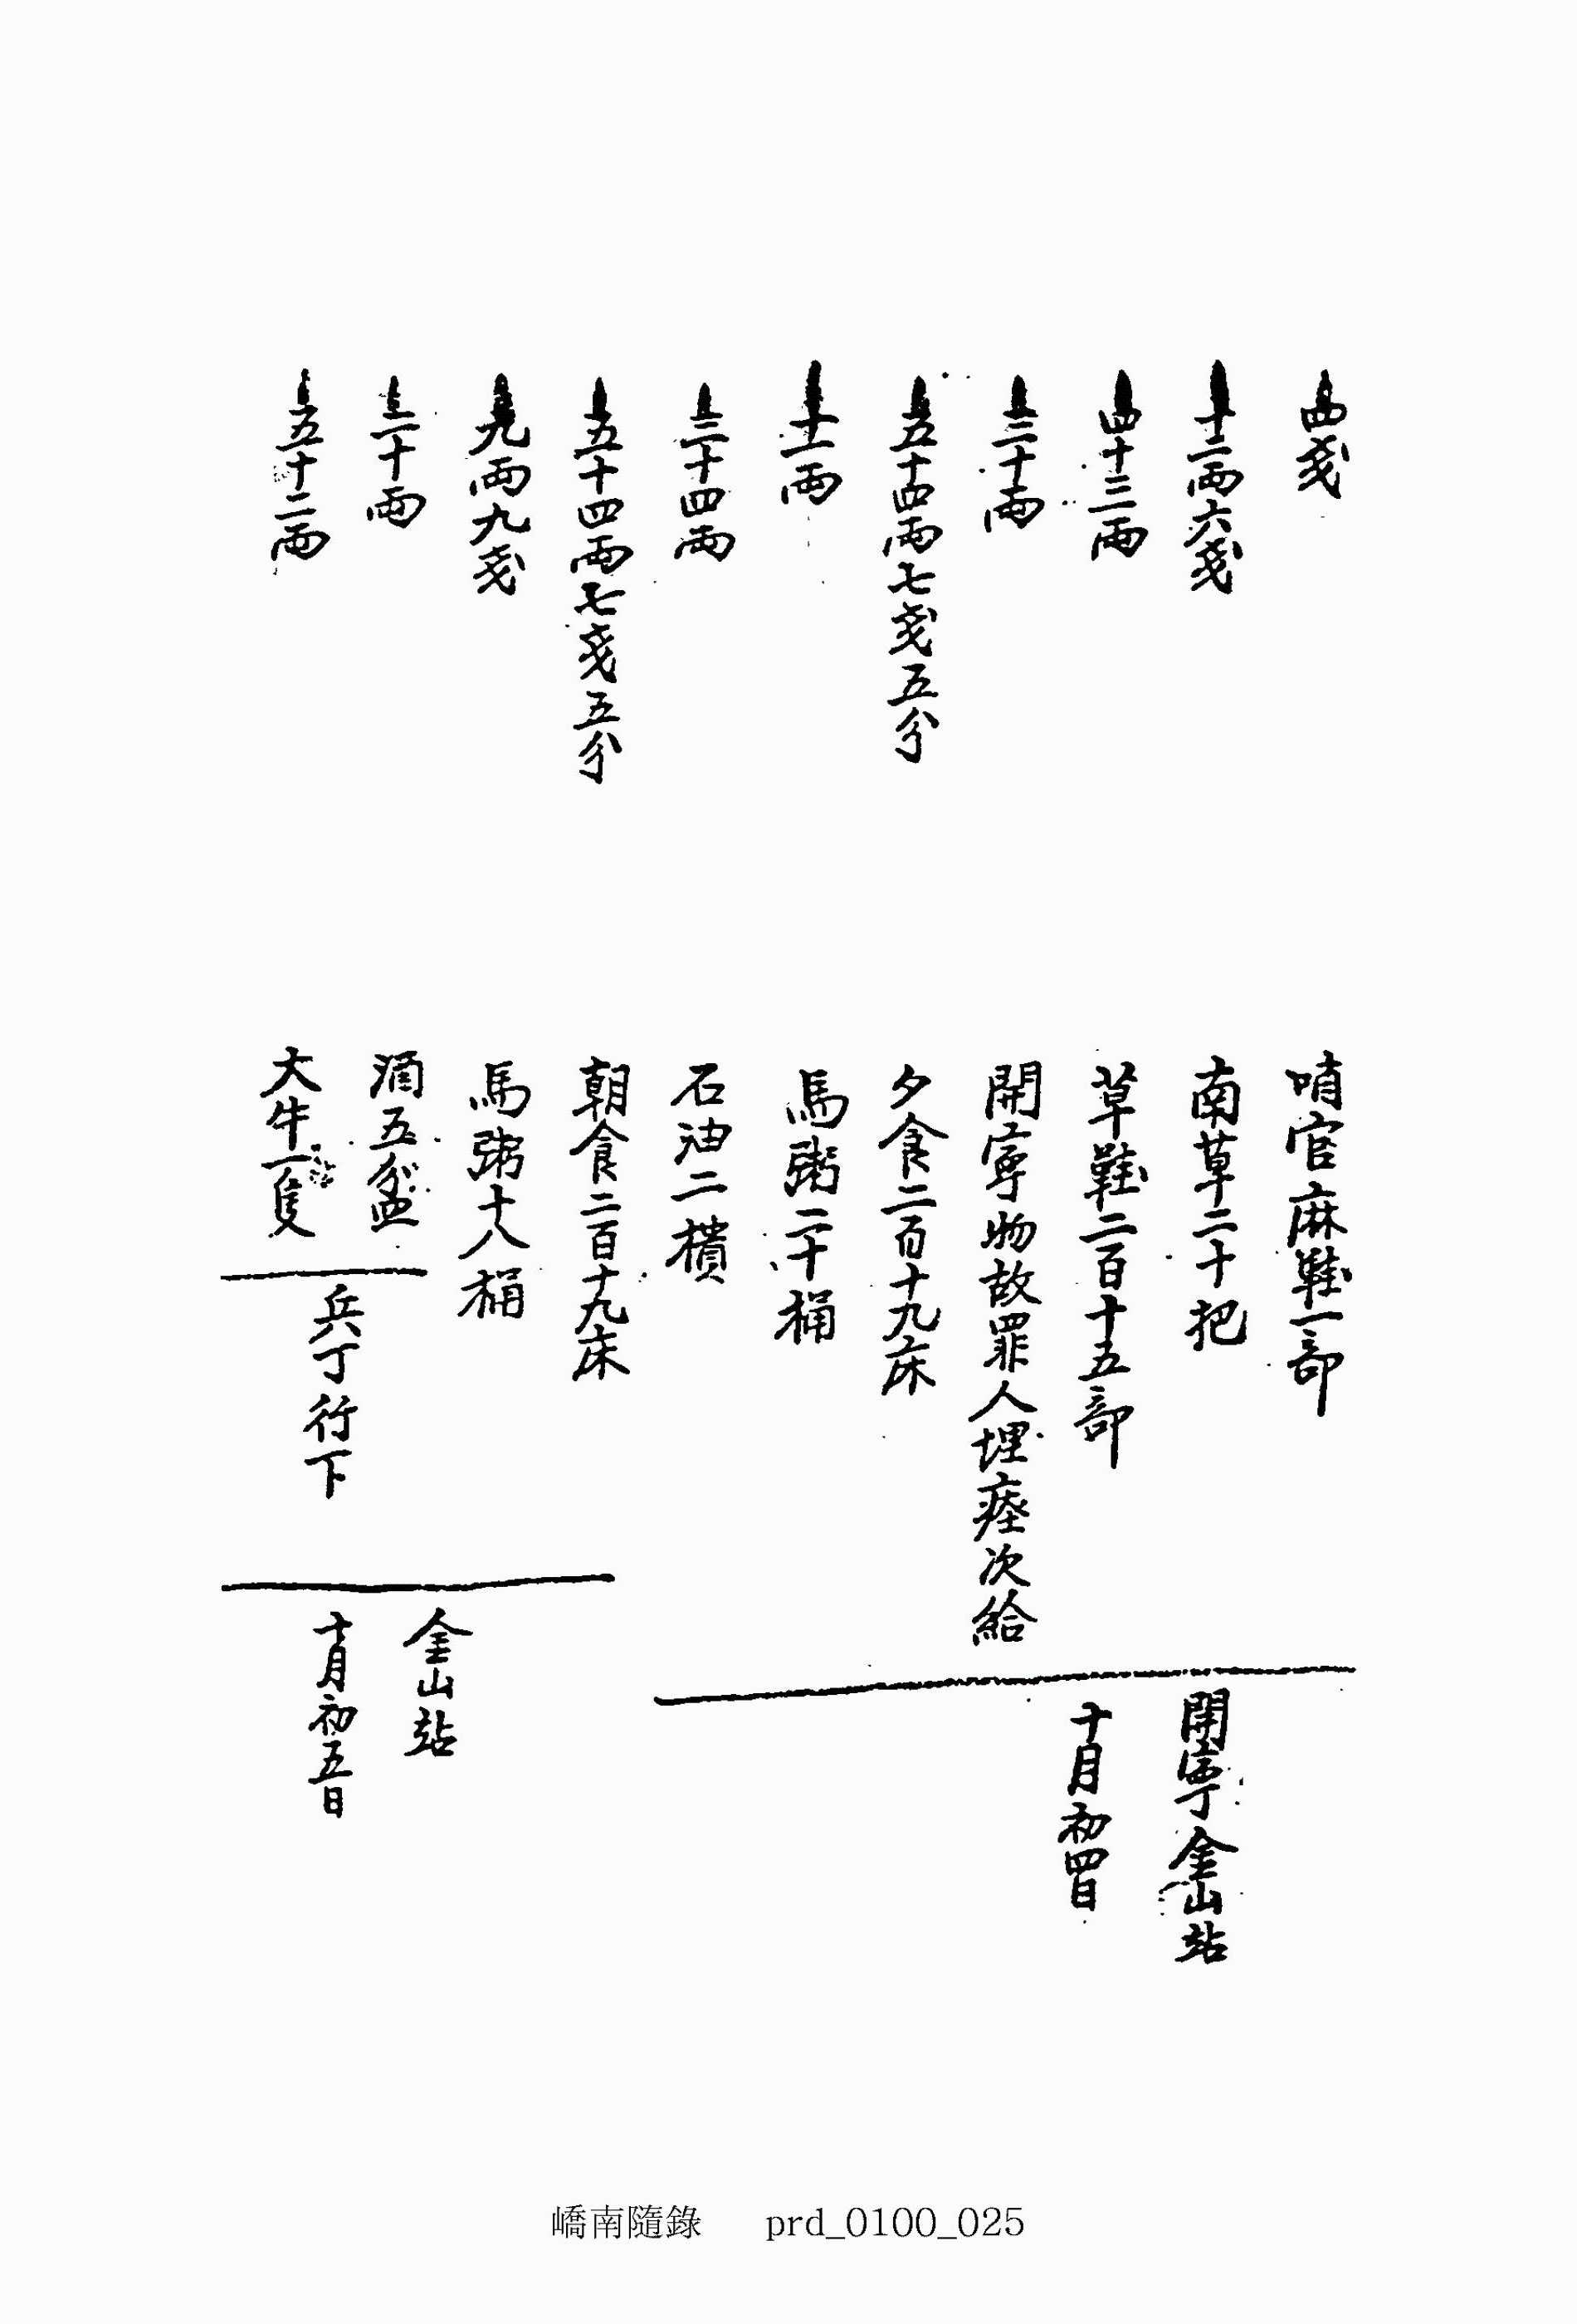 四戔　哨官麻鞋一部
十二兩六戔　南草二十把
四十三兩　草鞋二百十五部
三十兩　開寧物故罪人埋瘞次給
五十四兩七戔五分　夕食二百十九床
十一兩　馬粥二十桶
三十四兩　石油二樻
開寧金山站
十月初四日
五十四兩七戔五分　朝食二百十九床
九兩九戔　馬粥十八桶
二十兩　酒五盆
五十二兩　大牛一隻
兵丁行下
金山站
十月初五日
嶠南隨錄　prd_0100_025